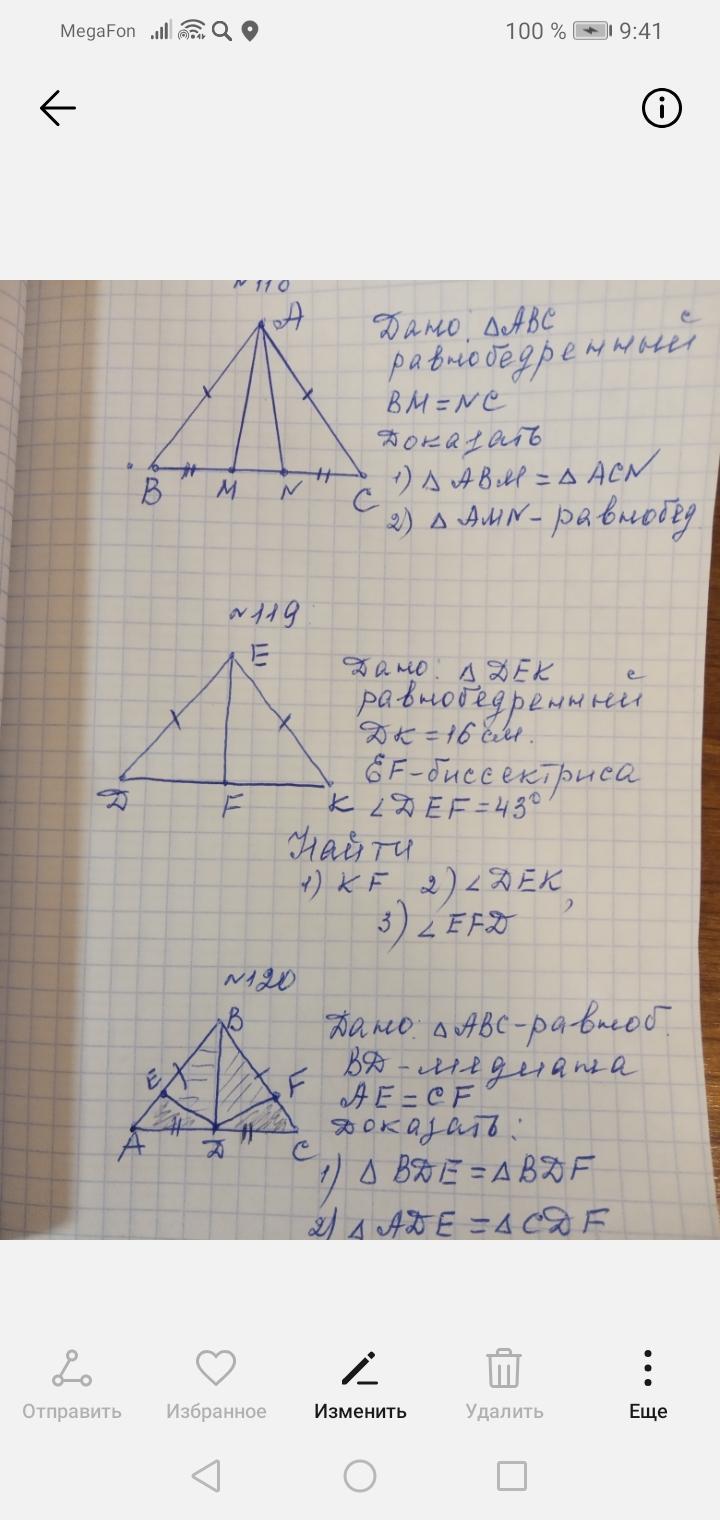 MegaFon 100 % 9:41
A
B M N C
Дано: ΔABC
равнобедренный с
BM = NC
Доказать
1) Δ ABM = Δ ACN
2) Δ AMN - равнобед
N119
E
D F K
Дано: Δ DEK
равнобедренный с
DK = 16 см.
EF - биссектриса
∠DEF = 43°
Найти
1) KF 2) ∠DEK,
3) ∠EFD
N120
B
E F
A D C
Дано: Δ ABC - равноб.
BD - медиана
AE = CF
Доказать:
1) Δ BDE = Δ BDF
2) Δ ADE = Δ CDF
Отправить Избранное Изменить Удалить Еще